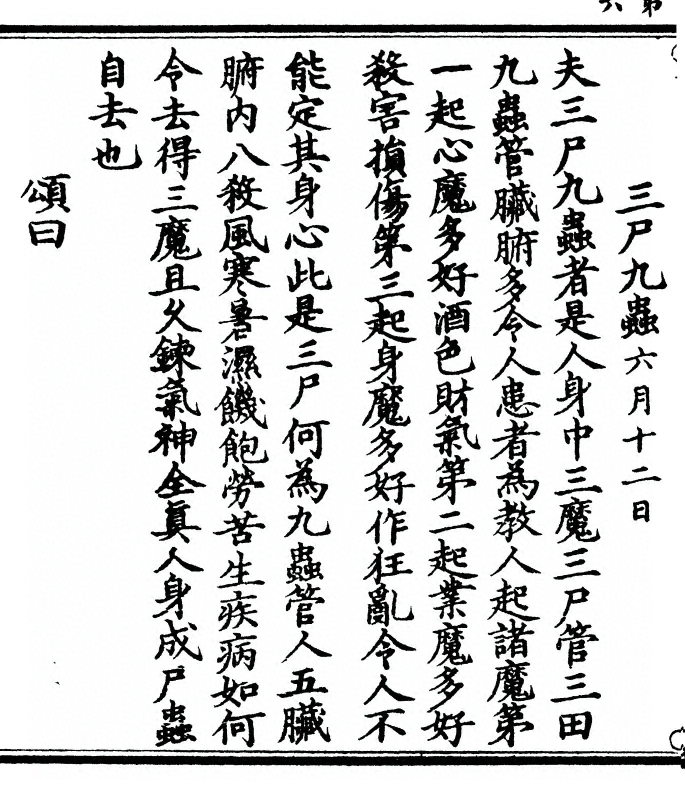 第六
三尸九蟲六月十二日
夫三尸九蟲者是人身中三魔三尸管三田
九蟲管臟腑多令人患者為教人起諸魔第
一起心魔多好酒色財氣第二起業魔多好
殺害損傷第三起身魔多好作狂亂令人不
能定其身心此是三尸何為九蟲管人五臟
腑内八殺風寒暑濕饑飽勞苦生疾病如何
令去得三魔且久鍊氣神全真人身成尸蟲
自去也
頌曰